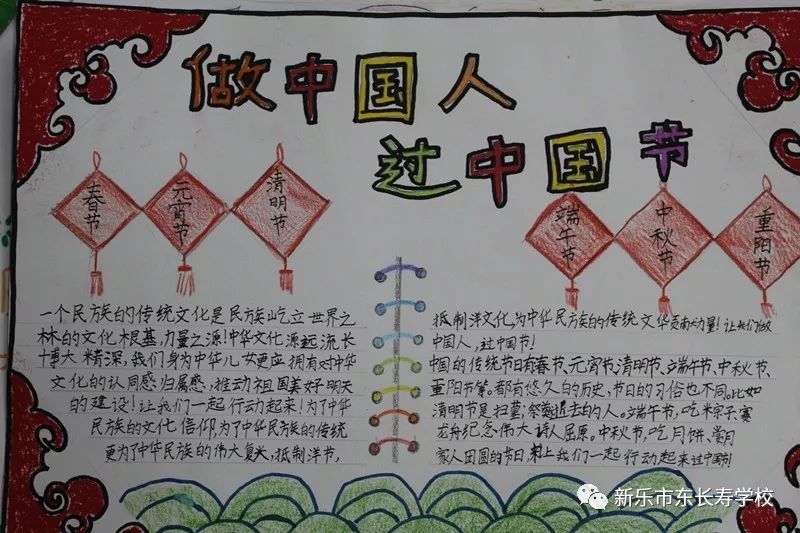 做中国人
过中国节
春节
元宵节
清明节
端午节
中秋节
重阳节
一个民族的传统文化是民族屹立世界之
林的文化根基,力量之源!中华文化源远流长
博大精深,我们身为中华儿女更应拥有对中华
文化的认同感归属感,推动祖国美好明天
的建设!让我们一起行动起来!为了中华
民族的文化信仰,为了中华民族的传统
更为了中华民族的伟大复兴,抵制洋节,
抵制洋文化,为中华民族的传统文华贡献力量!让我们做
中国人,过中国节!
中国的传统节日有春节、元宵节、清明节、端午节、中秋节、
重阳节等。都有悠久的历史,节日的习俗也不同。比如
清明节是扫墓,祭奠逝去的人。端午节,吃粽子、赛
龙舟纪念伟大诗人屈原。中秋节,吃月饼、赏月
家人团圆的节日,让我们一起行动起来过中国节!
新乐市东长寿学校